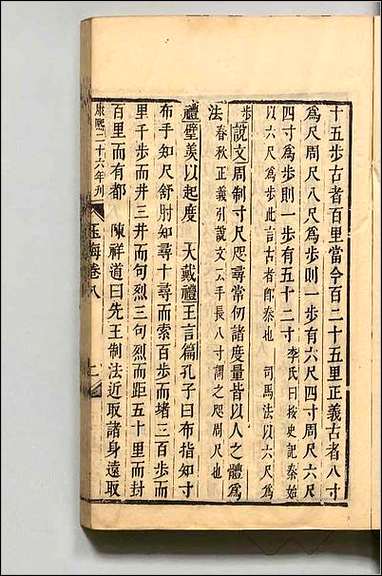 十五步古者百里當今百二十五里正義古者八寸
為尺周尺八尺為步則一步有六尺四寸周尺六尺
四寸為步則一步有五十二寸李氏曰按史記秦始
以六尺為步此言古者即秦也司馬法以六尺為
步說文周制寸尺咫尋常仞諸度量皆以人之體為
法春秋正義引說文云手長八寸謂之咫周尺也
禮璧羨以起度大戴禮王言篇孔子曰布指知寸
布手知尺舒肘知尋十尋而索百步而堵三百步而
里千步而井三井而句烈三句烈而距五十里而封
百里而有都陳祥道曰先王制法近取諸身遠取
康熙二十六年刊
玉海卷八